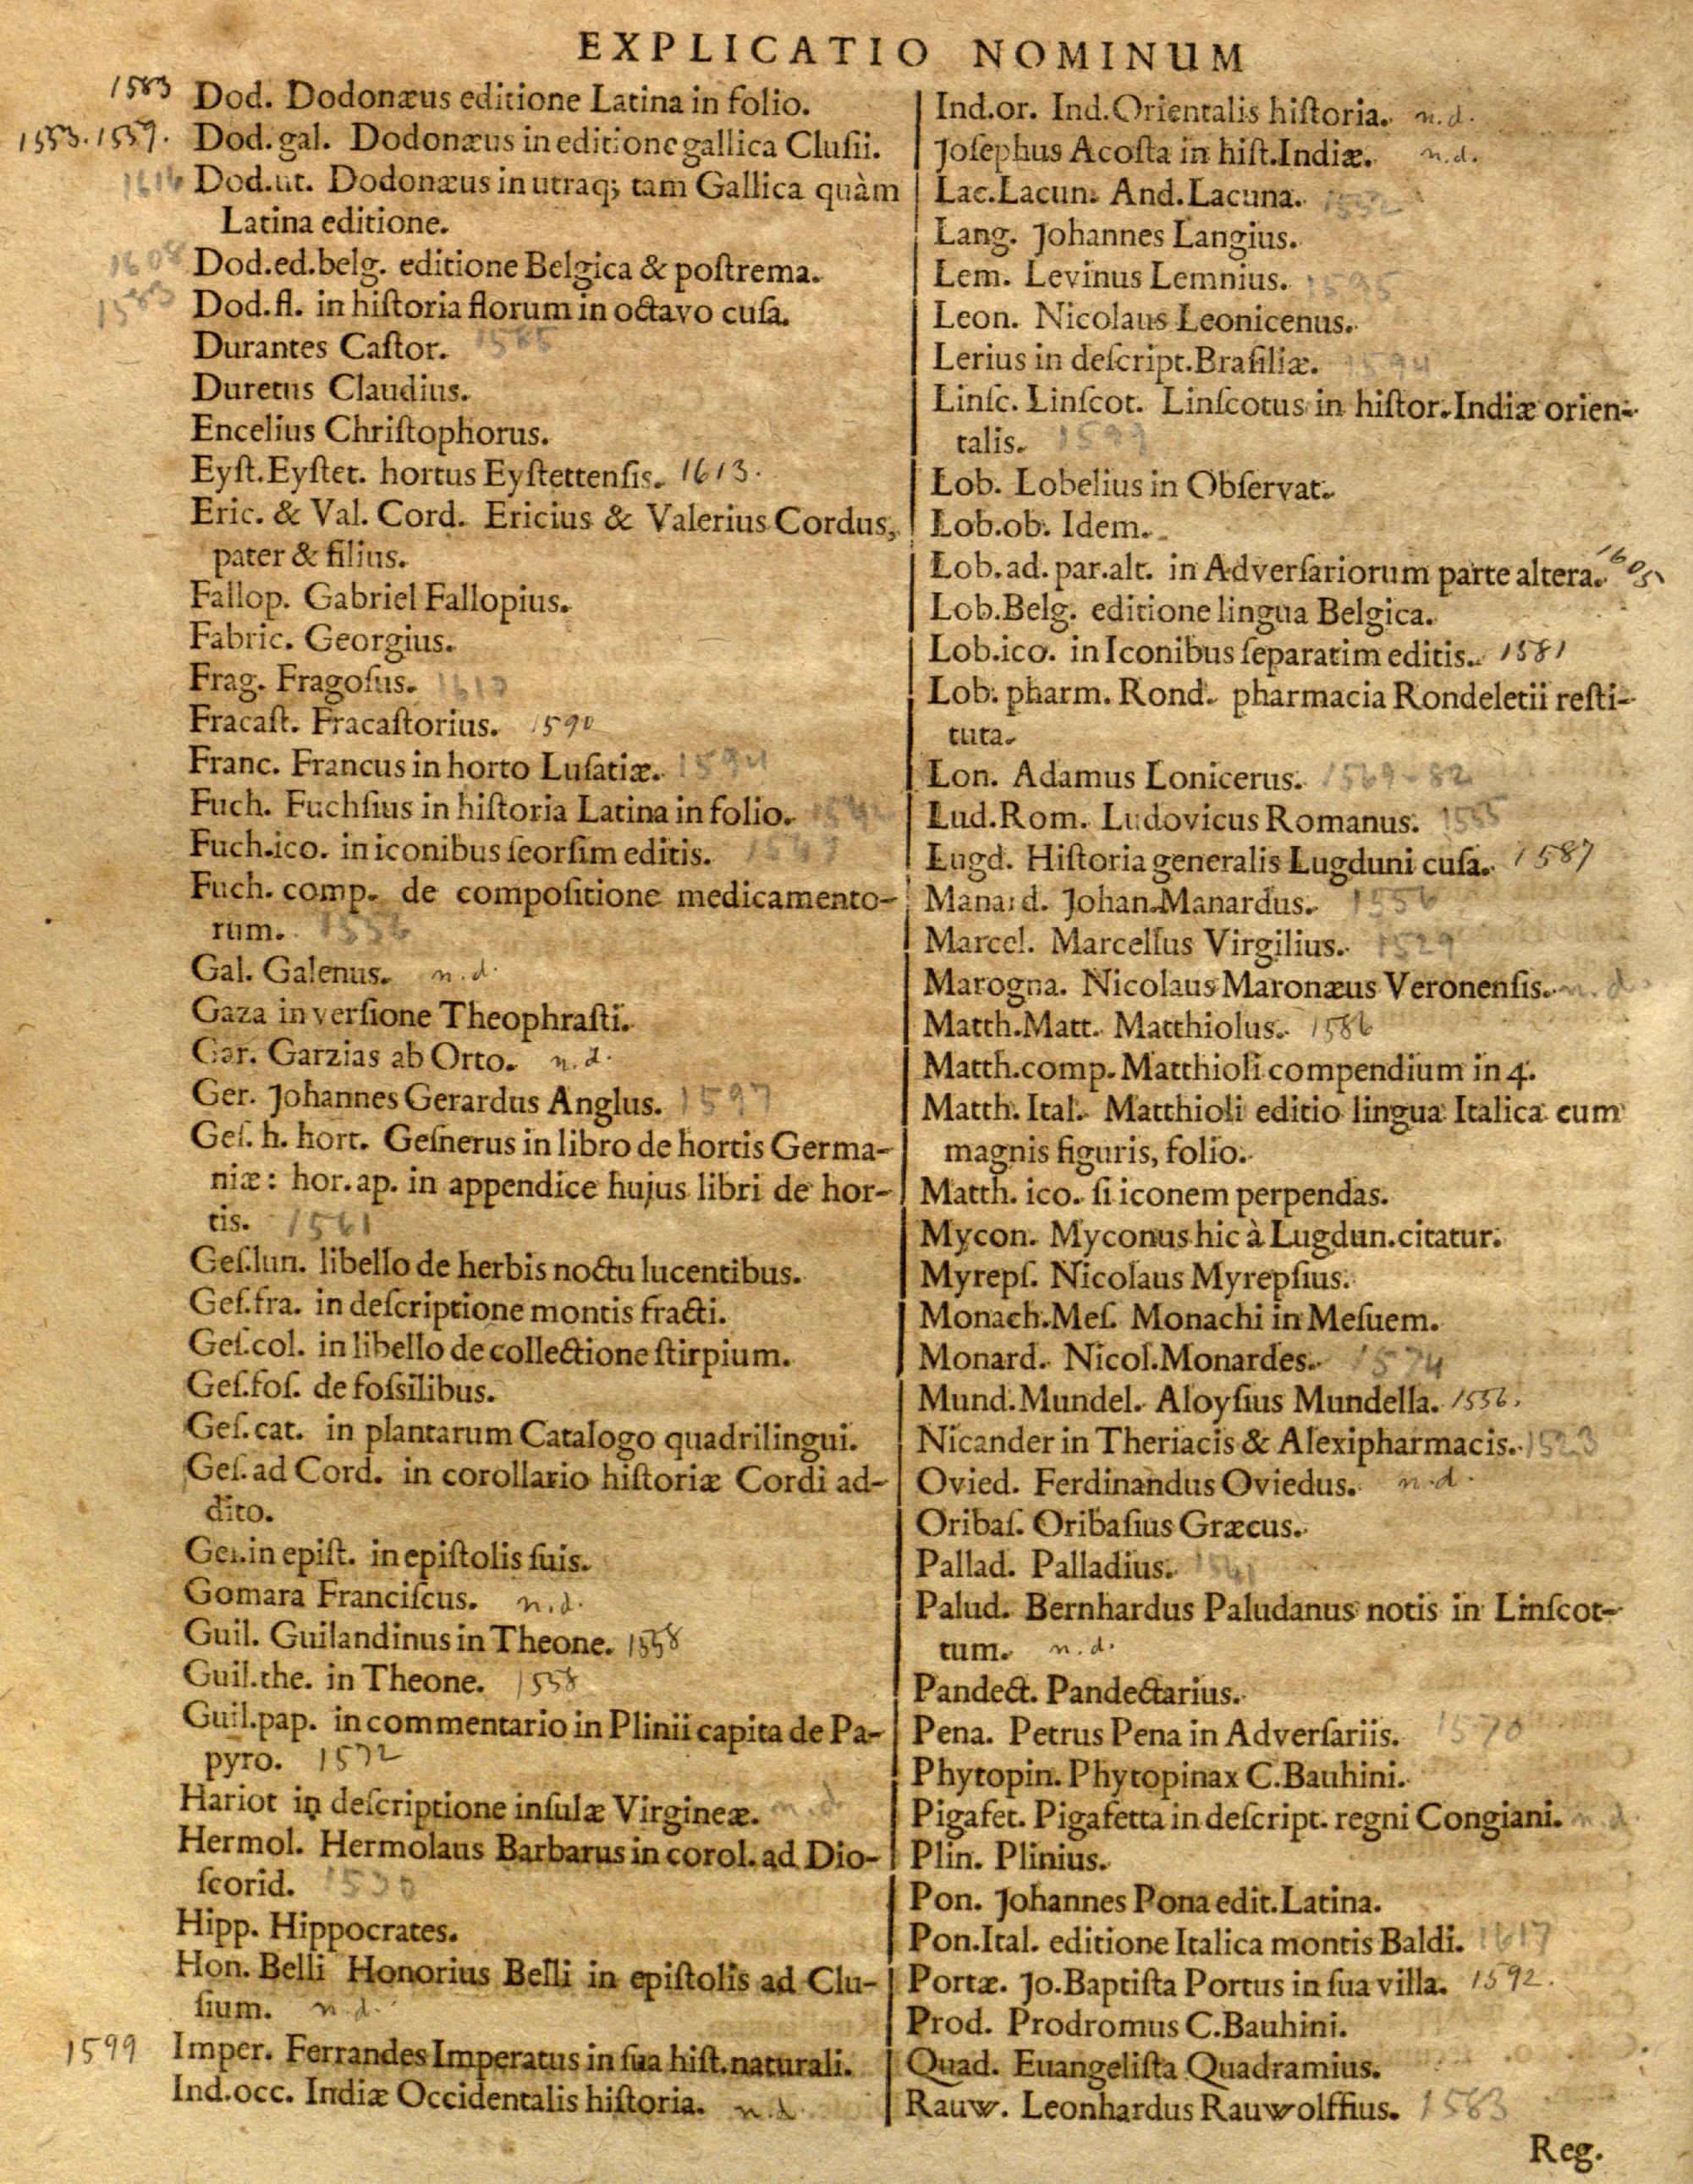 EXPLICATIO NOMINUM
1583 Dod. Dodonæus editione Latina in folio.
1553. 1557. Dod. gal. Dodonæus in editione gallica Clusii.
1616 Dod. ut. Dodonæus in utraq; tam Gallica quàm
Latina editione.
1608 Dod.ed.belg. editione Belgica & postrema.
1583 Dod. fl. in historia florum in octavo cusa.
Durantes Castor. 1585
Duretus Claudius.
Encelius Christophorus.
Eyst. Eystet. hortus Eystettensis. 1613.
Eric. & Val. Cord. Ericius & Valerius Cordus,
pater & filius.
Fallop. Gabriel Fallopius.
Fabric. Georgius.
Frag. Fragosus.
Fracast. Fracastorius. 1590
Franc. Francus in horto Lusatiæ. 1594
Fuch. Fuchsius in historia Latina in folio.
Fuch.ico. in iconibus seorsim editis.
Fuch. comp. de compositione medicamento-
rum. 1556
Gal. Galenus. n.d.
Gaza in versione Theophrasti.
Gar. Garzias ab Orto. n.d.
Ger. Johannes Gerardus Anglus. 1597
Ges. h. hort. Gesnerus in libro de hortis Germa-
niæ: hor. ap. in appendice hujus libri de hor-
tis. 1561
Ges.lun. libello de herbis noctu lucentibus.
Ges.fra. in descriptione montis fracti.
Ges.col. in libello de collectione stirpium.
Ges.fos. de fossilibus.
Ges. cat. in plantarum Catalogo quadrilingui.
Ges. ad Cord. in corollario historiæ Cordi ad-
dito.
Ges.in epist. in epistolis suis.
Gomara Franciscus. n.d.
Guil. Guilandinus in Theone. 1558
Guil.the. in Theone. 1558
Guil.pap. in commentario in Plinii capita de Pa-
pyro. 1572
Hariot in descriptione insulæ Virgineæ. n.d.
Hermol. Hermolaus Barbarus in corol. ad Dio-
scorid. 1530
Hipp. Hippocrates.
Hon. Belli Honorius Belli in epistolis ad Clu-
sium. n.d.
1599 Imper. Ferrandes Imperatus in sua hist. naturali.
Ind.occ. Indiæ Occidentalis historia. n.d.
Ind.or. Ind. Orientalis historia. n.d.
Josephus Acosta in hist. Indiæ. n.d.
Lac. Lacun. And. Lacuna. 1552
Lang. Johannes Langius.
Lem. Levinus Lemnius. 1595
Leon. Nicolaus Leonicenus.
Lerius in descript. Brasiliæ. 1594
Linsc. Linscot. Linscotus in histor. Indiæ orien-
talis. 1599
Lob. Lobelius in Observat.
Lob.ob. Idem.
Lob. ad. par. alt. in Adversariorum parte altera. 1605
Lob.Belg. editione lingua Belgica.
Lob.ico. in Iconibus separatim editis. 1581
Lob. pharm. Rond. pharmacia Rondeletii resti-
tuta.
Lon. Adamus Lonicerus. 1569-82
Lud.Rom. Ludovicus Romanus. 1555
Lugd. Historia generalis Lugduni cusa. 1587
Manard. Johan. Manardus. 1556
Marcel. Marcellus Virgilius. 1529
Marogna. Nicolaus Maronæus Veronensis. n.d.
Matth.Matt. Matthiolus. 1586
Matth.comp. Matthioli compendium in 4.
Matth. Ital. Matthioli editio lingua Italica cum
magnis figuris, folio.
Matth. ico. si iconem perpendas.
Mycon. Myconus hic à Lugdun. citatur.
Myreps. Nicolaus Myrepsius.
Monach.Mes. Monachi in Mesuem.
Monard. Nicol. Monardes. 1574
Mund. Mundel. Aloysius Mundella. 1556.
Nicander in Theriacis & Alexipharmacis. 1523
Ovied. Ferdinandus Oviedus. n.d.
Oribas. Oribasius Græcus.
Pallad. Palladius. 1541
Palud. Bernhardus Paludanus notis in Linscot-
tum. n.d.
Pandect. Pandectarius.
Pena. Petrus Pena in Adversariis. 1570
Phytopin. Phytopinax C.Bauhini.
Pigafet. Pigafetta in descript. regni Congiani. n.d.
Plin. Plinius.
Pon. Johannes Pona edit. Latina.
Pon.Ital. editione Italica montis Baldi. 1617
Portæ. Jo. Baptista Portus in sua villa. 1592.
Prod. Prodromus C.Bauhini.
Quad. Euangelista Quadramius.
Rauw. Leonhardus Rauwolffius. 1583
Reg.